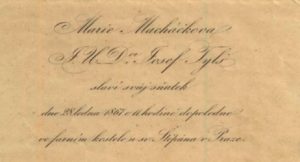 Marie Macháčkova
J. U. Dr. Josef Tylš
slaví svůj sňatek
dne 28. ledna 1867 o 11 hodině dopoledne
ve farním kostele u sv. Štěpána v Praze.